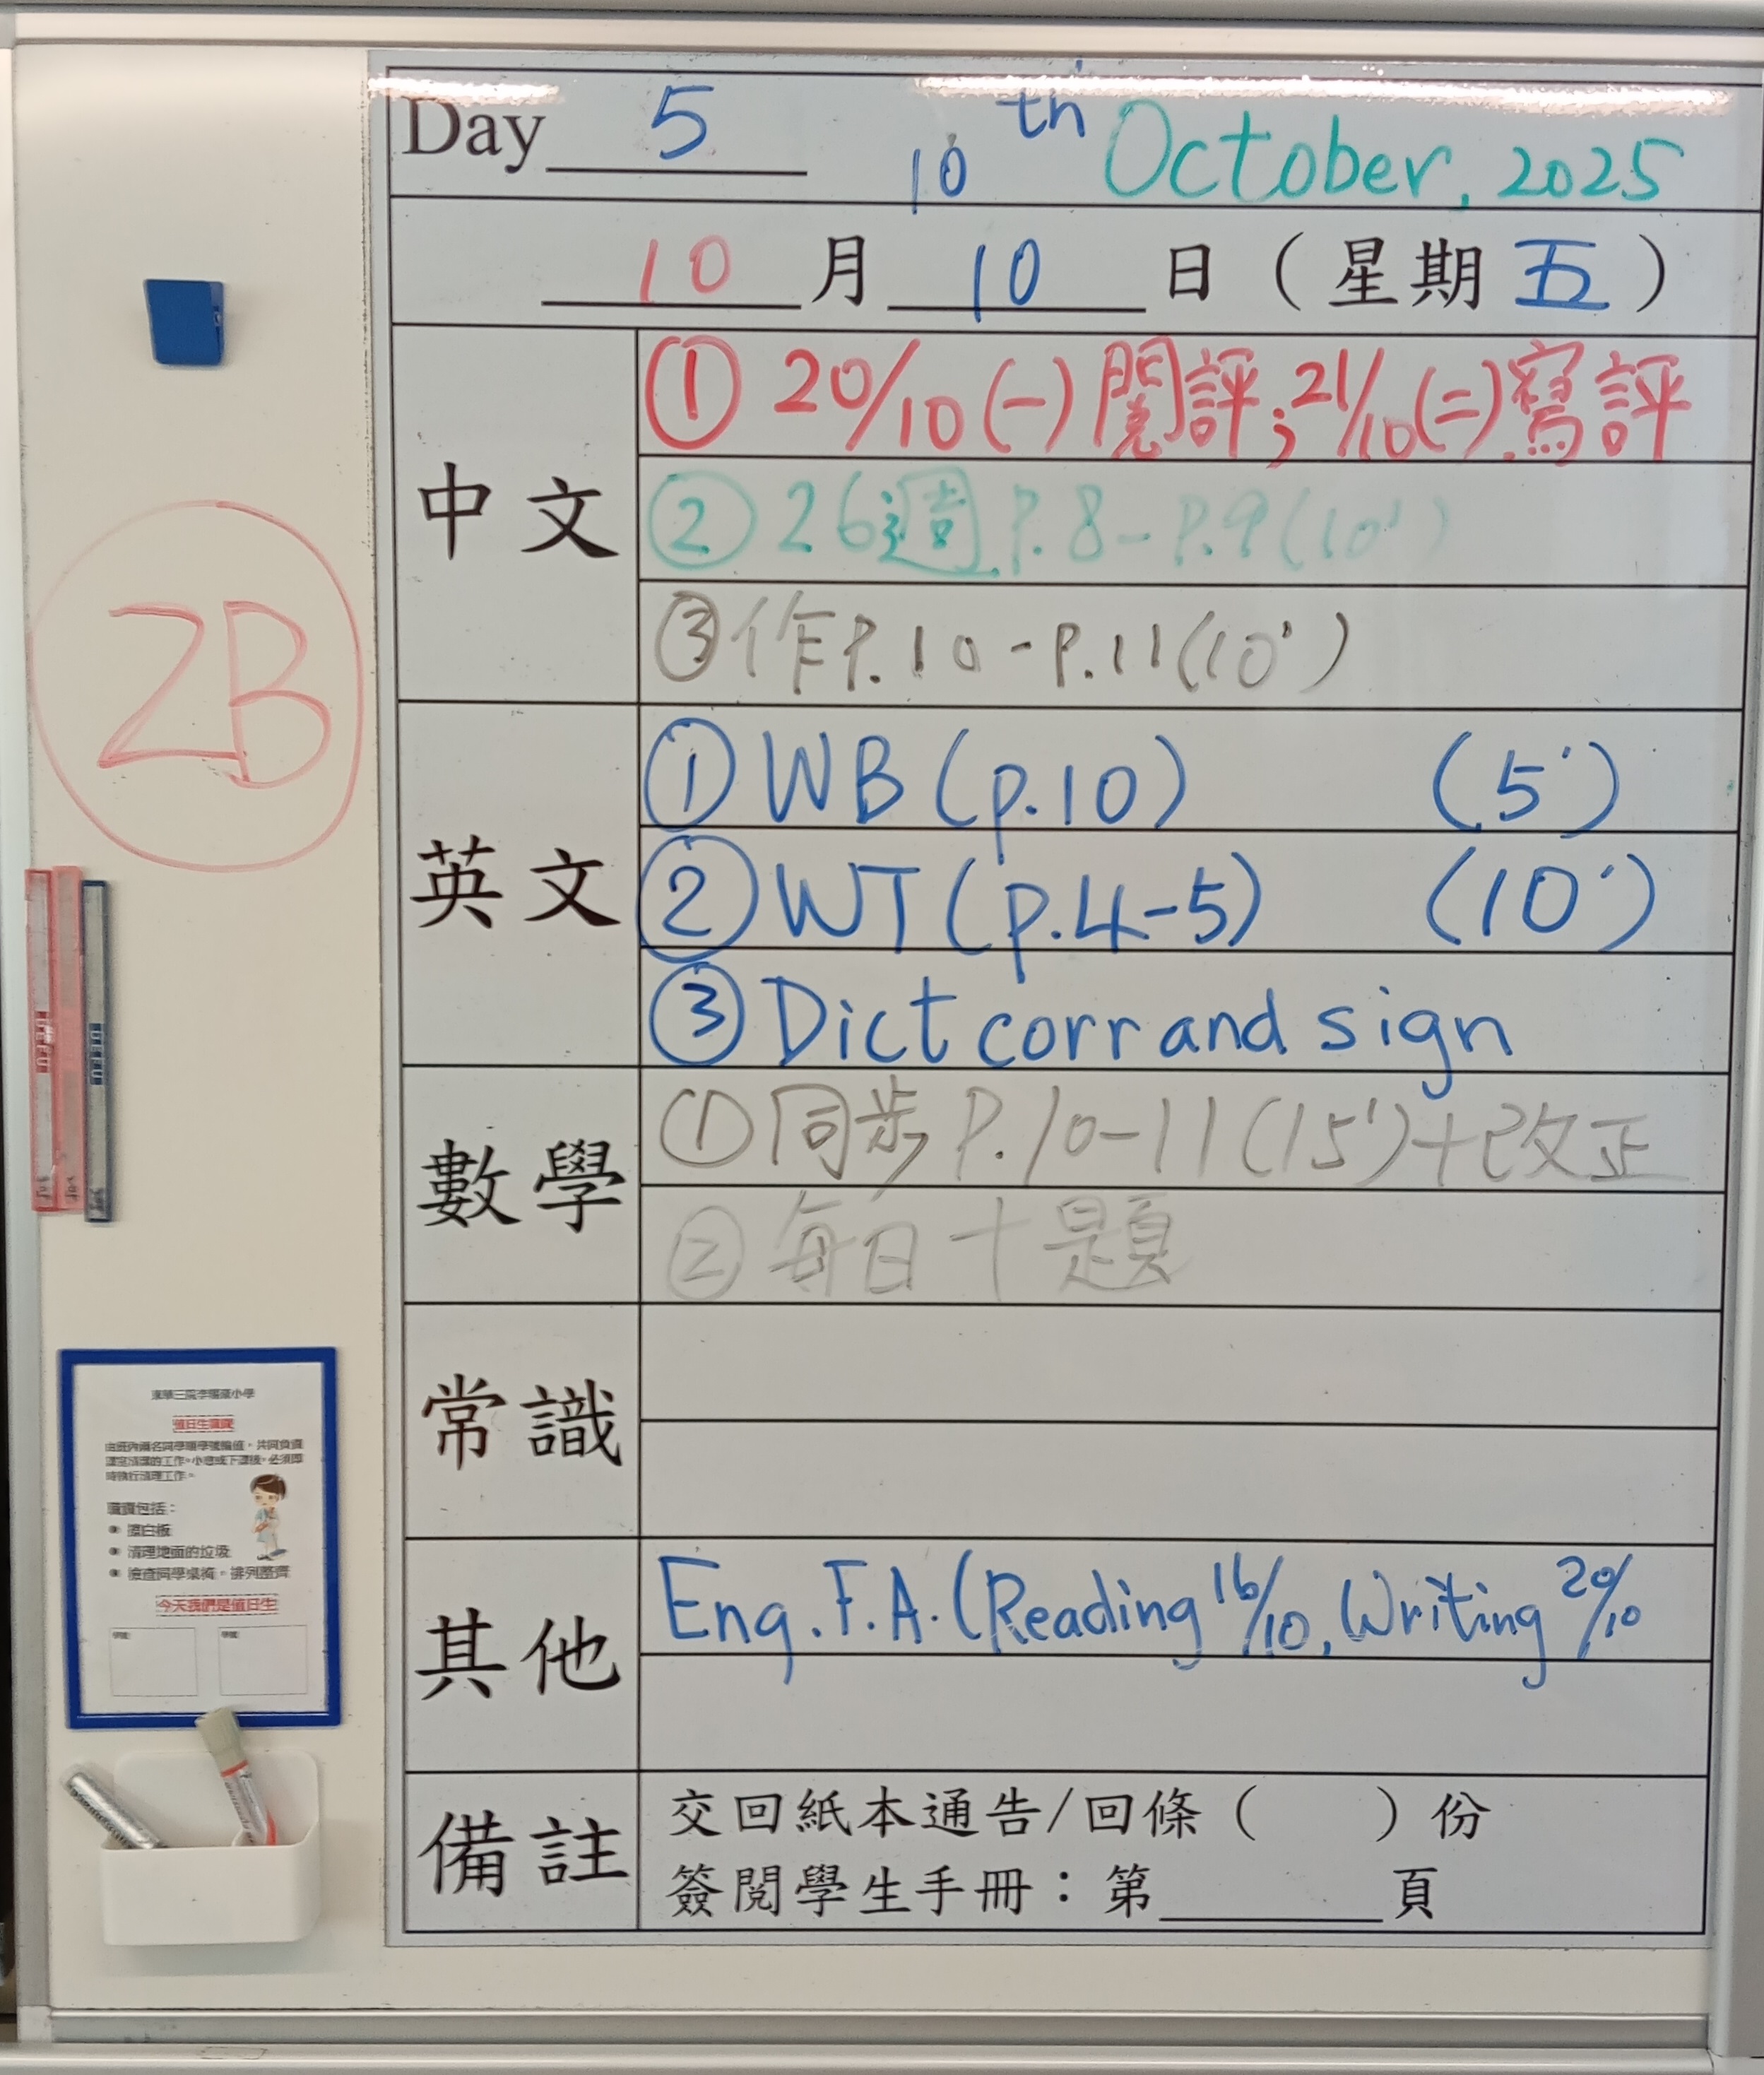 Day 5 10th October, 2025
10 月 10 日（星期五）
中文
① 20/10 (一) 閱評; 21/10 (二) 寫評
② 26週 P.8-P.9 (10')
③ 作 P.10-P.11 (10')
2B
英文
① WB (p.10) (5')
② WT (p.4-5) (10')
③ Dict corr and sign
數學
① 同步 P.10-11 (15') + 改正
② 每日十題
常識
其他
Eng. F.A. (Reading 16/10, Writing 20/10
備註
交回紙本通告/回條（　　）份
簽閱學生手冊：第______頁
值日生職責
由班內兩名同學順學號輪值，共同負責
課室清潔的工作。小息或下課後，必須即
時執行清理工作。
職責包括：
擦白板
清理地面的垃圾
檢查同學桌椅，排列整齊
今天我們是值日生